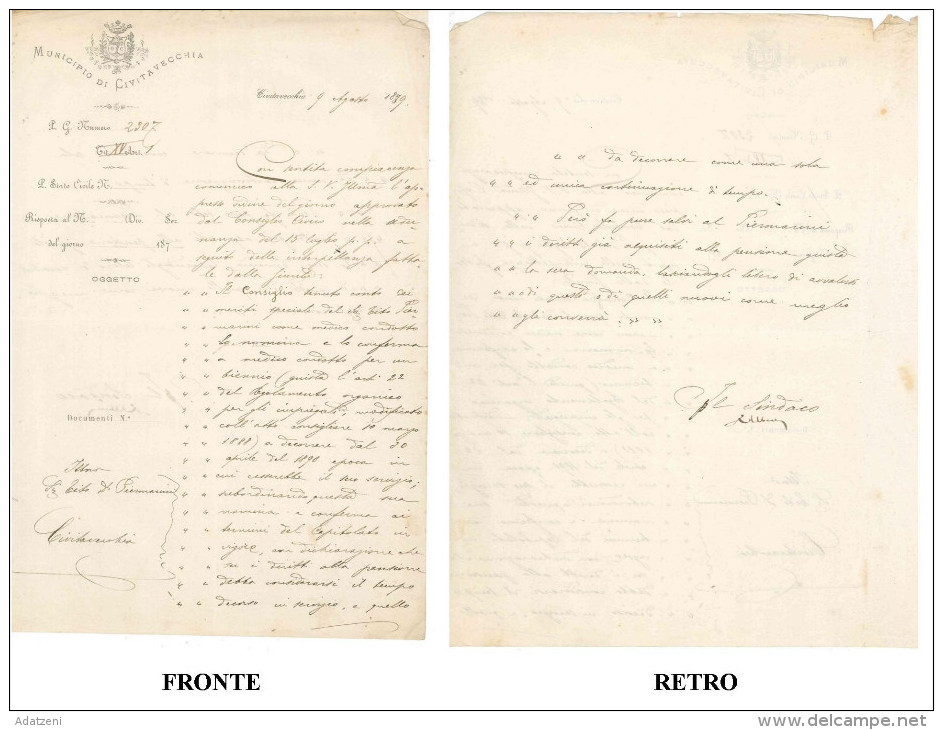 MUNICIPIO DI CIVITAVECCHIA
Civitavecchia 9 Agosto 1889.
P. G. Numero 2307
Tit. XI Art. 1
P. Stato Civile N.
Risposta al N. Div. Sez.
del giorno 187
OGGETTO
Documenti N.°
Illmo
Sig. Tito Dr. Piermarini
Civitavecchia
Con sentita compiacenza
comunico alla S. V. Illma l'ap-
presso ordine del giorno approvato
dal Consiglio Civico nella adu-
nanza del 15 luglio p. p. a
seguito della interpellanza fatta-
le dalla Giunta:
" " Il Consiglio tenuto conto dei
" " meriti speciali del Sig. Tito Pier-
" " marini come medico condotto
" " lo nomina e lo conferma
" " a medico condotto per un
" " biennio (giusta l'art. 22
" " del Regolamento organico
" " per gli impiegati, modificato
" " coll'atto consigliare 10 marzo
" " 1888) a decorrere dal 30
" " aprile del 1890 epoca in
" " cui cesserebbe il suo servizio;
" " subordinando questa sua
" " nomina e conferma ai
" " termini del Capitolato in
" " vigore, con dichiarazione che
" " se i diritti alla pensione
" " debba considerarsi il tempo
" " decorso in servizio, e quello
" " da decorrere come una sola
" " ed unica continuazione di tempo.
" " Però fa pure salvi al Piermarini
" " i diritti già acquisiti alla pensione giusta
" " la sua domanda, lasciandogli libero di avvalersi
" " di questi o di quelli nuovi come meglio
" " gli converrà. " "
Il Sindaco
FRONTE
RETRO
Adatzeni
delcampe.net